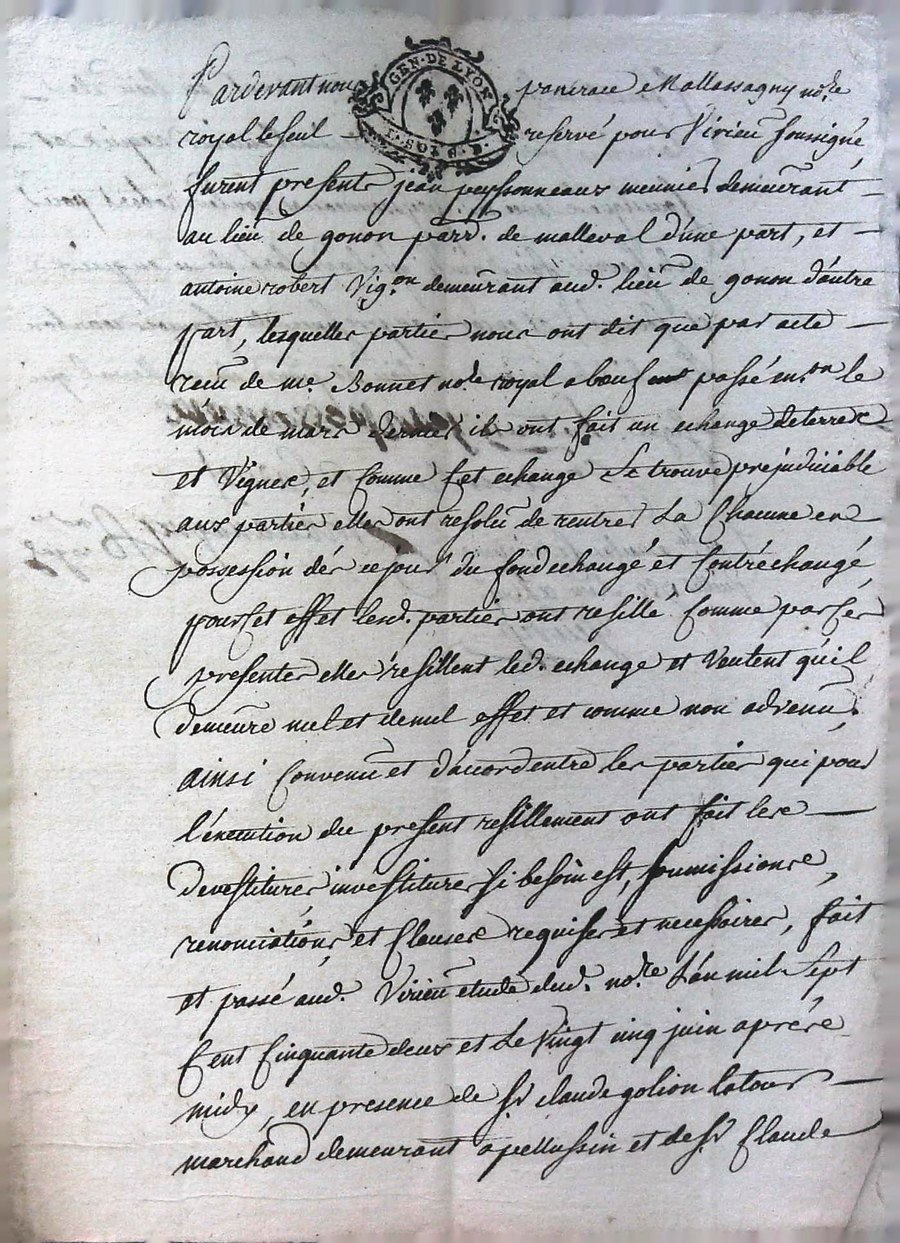 GEN·DE LYON
1·SOL 8·D·
Pardevant nous pancrace Mallassagny nore
royal le seul reservé pour Virieu soussigné,
furent presents jean peyssonneaux meunier demeurant
au lieu de gonon parr. de malleval d'une part, et
antoine robert Vig.on demeurant aud. lieu de gonon d'autre
part, lesquelles parties nous ont dit que par acte
receu de me. Bonnet nore royal a passé le
mois de mars dernier ils ont fait un echange de terres
et Vignes, et Comme Cet echange Se trouve prejudiciable
aux parties elles ont resolu de rentrer La Chacune en
possession dés ce jour du fond echangé et Contréchangé,
pour Cet effet lesd. parties ont resillé Comme par Ces
presentes elles resillent led. echange et Veulent qu'il
demeure nul et de nul effet et comme non advenu.
ainsi Convenu et d'acord entre les parties qui pour
l'éxecution du present resillement ont fait les
devestitures, investitures si besoin est, soumissions,
renonciations, et Clauses requises et necessaires, fait
et passé aud. Virieu étude dud. nore L'an mil Sept
Cent Cinquante deux et Le Vingt cinq juin aprés
midy, en presence de Sr claude golion latour
marchand demeurant a pellussin et de Sr Claude